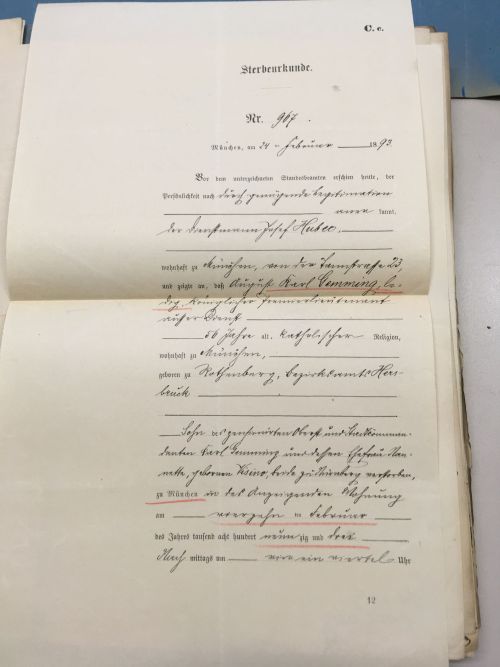 C. c.
Sterbeurkunde.
Nr. 967.
München, am 24ten Februar 1893
Vor dem unterzeichneten Standesbeamten erschien heute, der
Persönlichkeit nach durch genügende Legitimation
anerkannt,
der Dienstmann Josef Huber,
wohnhaft zu München, von der Tannstrasse 23,
und zeigte an, daß August Karl Gemming, le-
dig, Königlicher Premierlieutenant
außer Dienst
56 Jahre alt, katholischer Religion,
wohnhaft zu München,
geboren zu Rothenberg, Bezirksamts Hers-
bruck
Sohn des pensionirten Oberst und Stadtkomman-
danten Karl Gemming und dessen Ehefrau Nan-
nette, gebornen beide zu Nürnberg verstorben,
zu München in des Anzeigenden Wohnung
am vierzehnten Februar
des Jahres tausend acht hundert neunzig und drei
Nachmittags um vier ein viertel Uhr
12